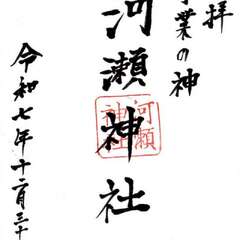 拝
業の神
河瀬神社
河瀬
神社
令和七年十二月三十